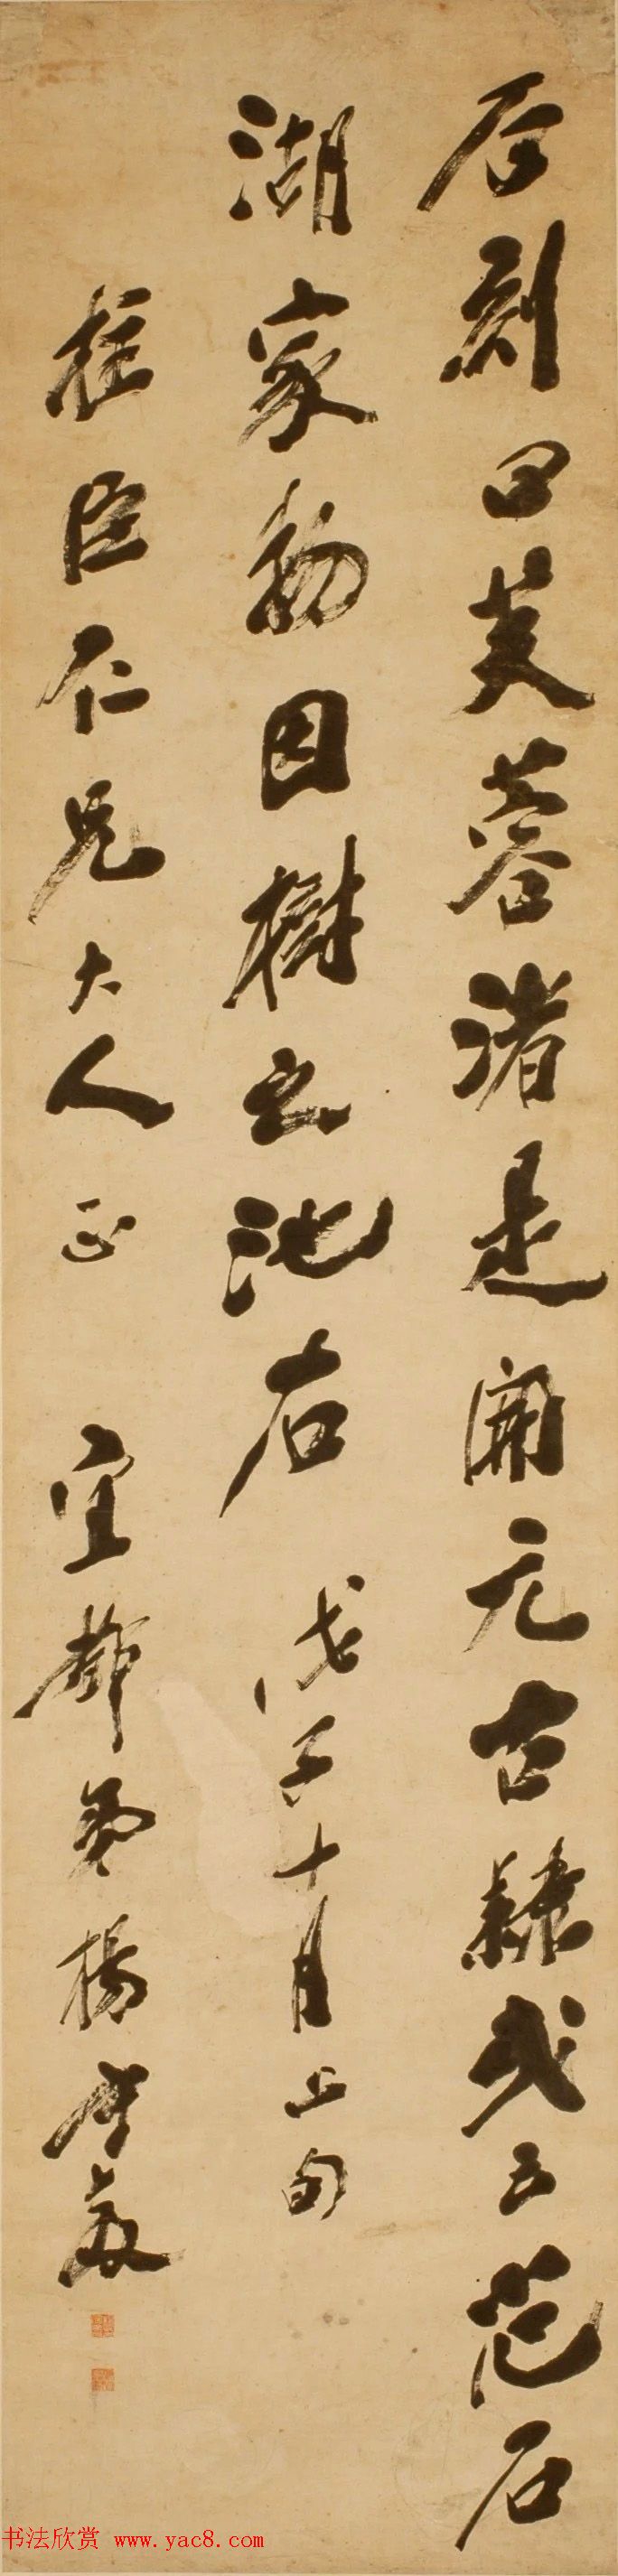 石刻曰芙蓉渚是開元古隸或云范石
湖家物因樹之池右 戊子十月上旬
桂臣仁兄大人正 宜都弟楊守敬
书法欣赏 www.yac8.com